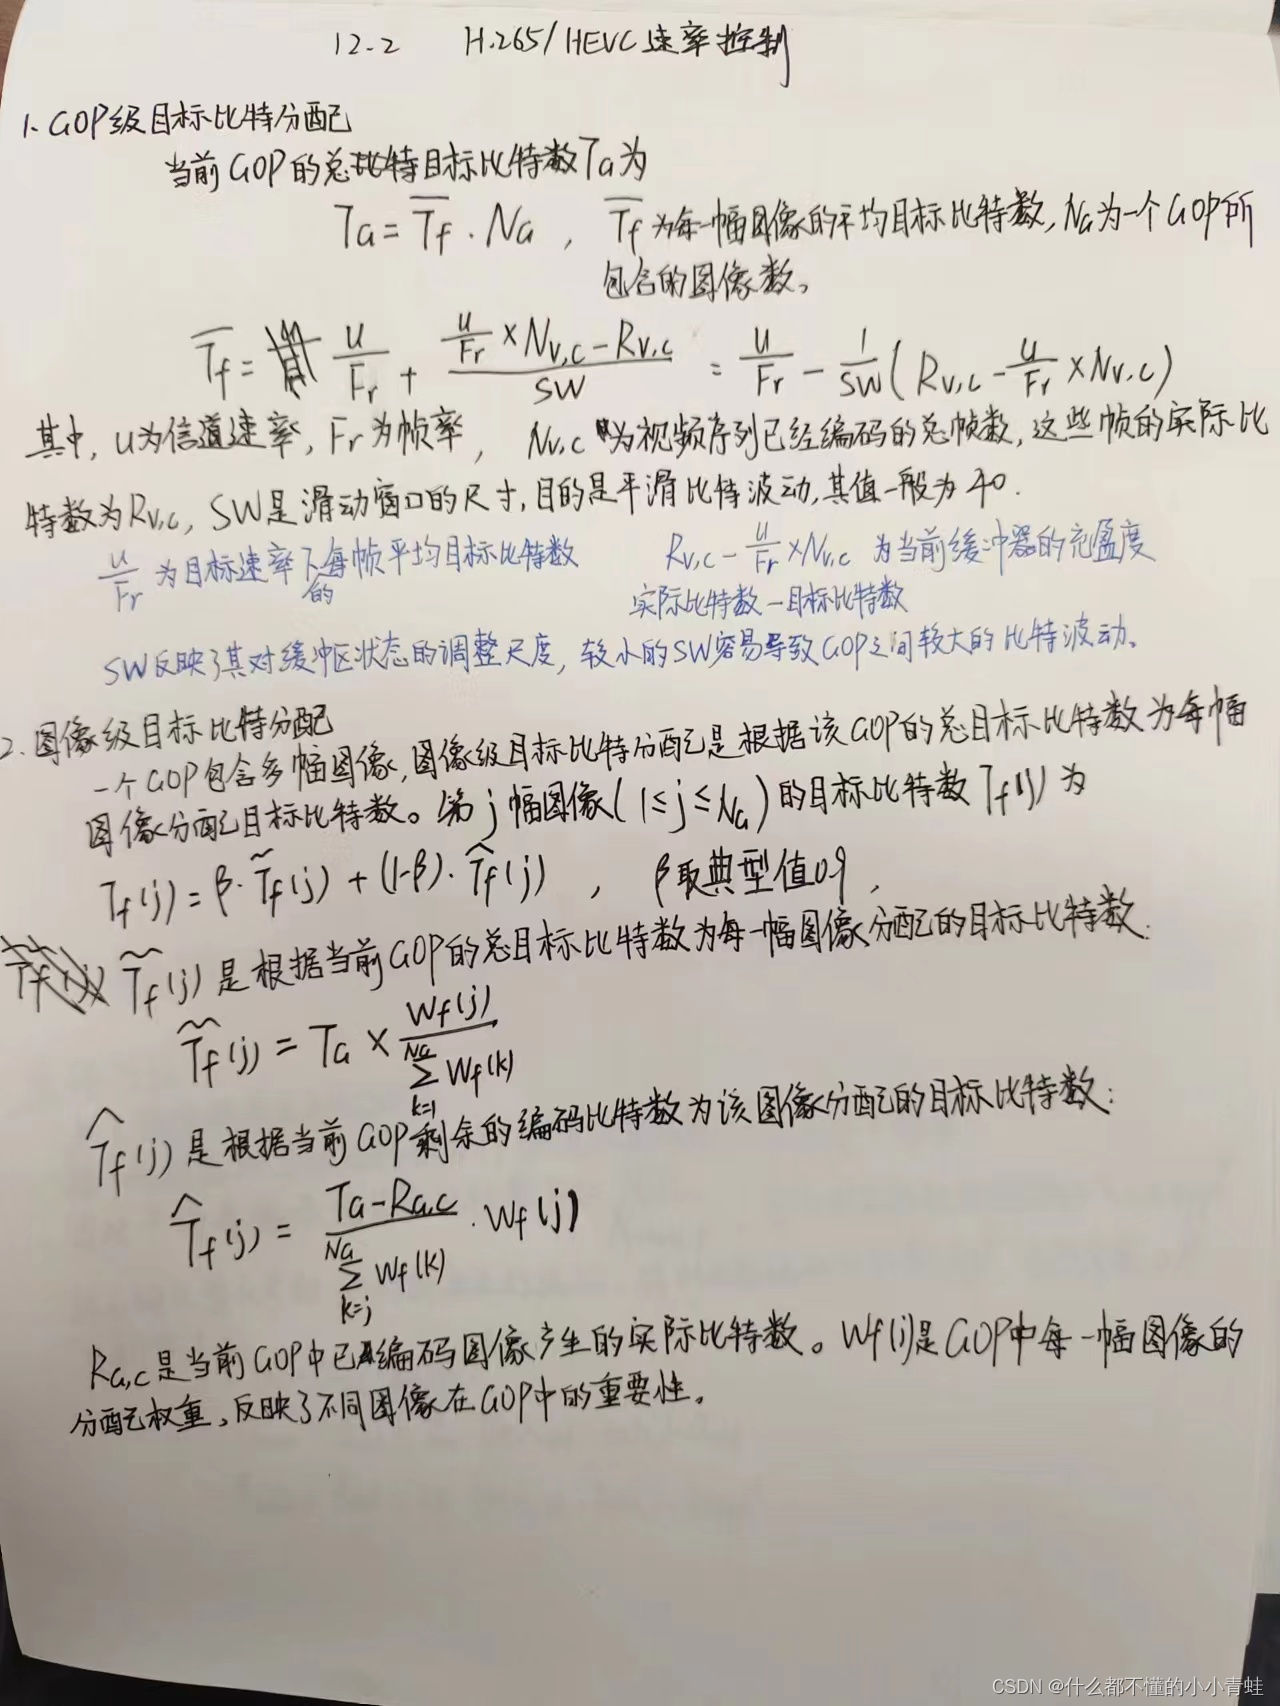 12.2 H.265/HEVC速率控制
1. GOP级目标比特分配
当前GOP的总比特目标比特数TG为
TG = T̄f · NG , T̄f为每一幅图像的平均目标比特数, NG为一个GOP所
包含的图像数。
T̄f = u/Fr + (u/Fr × Nv,c − Rv,c)/SW = u/Fr − 1/SW ( Rv,c − u/Fr × Nv,c )
其中, u为信道速率, Fr为帧率, Nv,c为视频序列已经编码的总帧数, 这些帧的实际比
特数为Rv,c, SW是滑动窗口的尺寸, 目的是平滑比特波动, 其值一般为40.
u/Fr 为目标速率下的每帧平均目标比特数 Rv,c − u/Fr × Nv,c 为当前缓冲器的充盈度
实际比特数 − 目标比特数
SW反映了其对缓冲区状态的调整尺度, 较小的SW容易导致GOP之间较大的比特波动。
2. 图像级目标比特分配
一个GOP包含多幅图像, 图像级目标比特分配是根据该GOP的总目标比特数为每幅
图像分配目标比特数。第j幅图像(1≤j≤NG)的目标比特数Tf(j)为
Tf(j) = β · T̃f(j) + (1−β) · T̂f(j) , β取典型值0.9,
T̃f(j)是根据当前GOP的总目标比特数为每一幅图像分配的目标比特数:
T̃f(j) = TG × Wf(j) / ∑(k=1→NG) Wf(k)
T̂f(j)是根据当前GOP剩余的编码比特数为该图像分配的目标比特数:
T̂f(j) = (TG − RG,c) / ∑(k=j→NG) Wf(k) · Wf(j)
RG,c是当前GOP中已编码图像产生的实际比特数。Wf(j)是GOP中每一幅图像的
分配权重, 反映了不同图像在GOP中的重要性。
CSDN @什么都不懂的小小青蛙